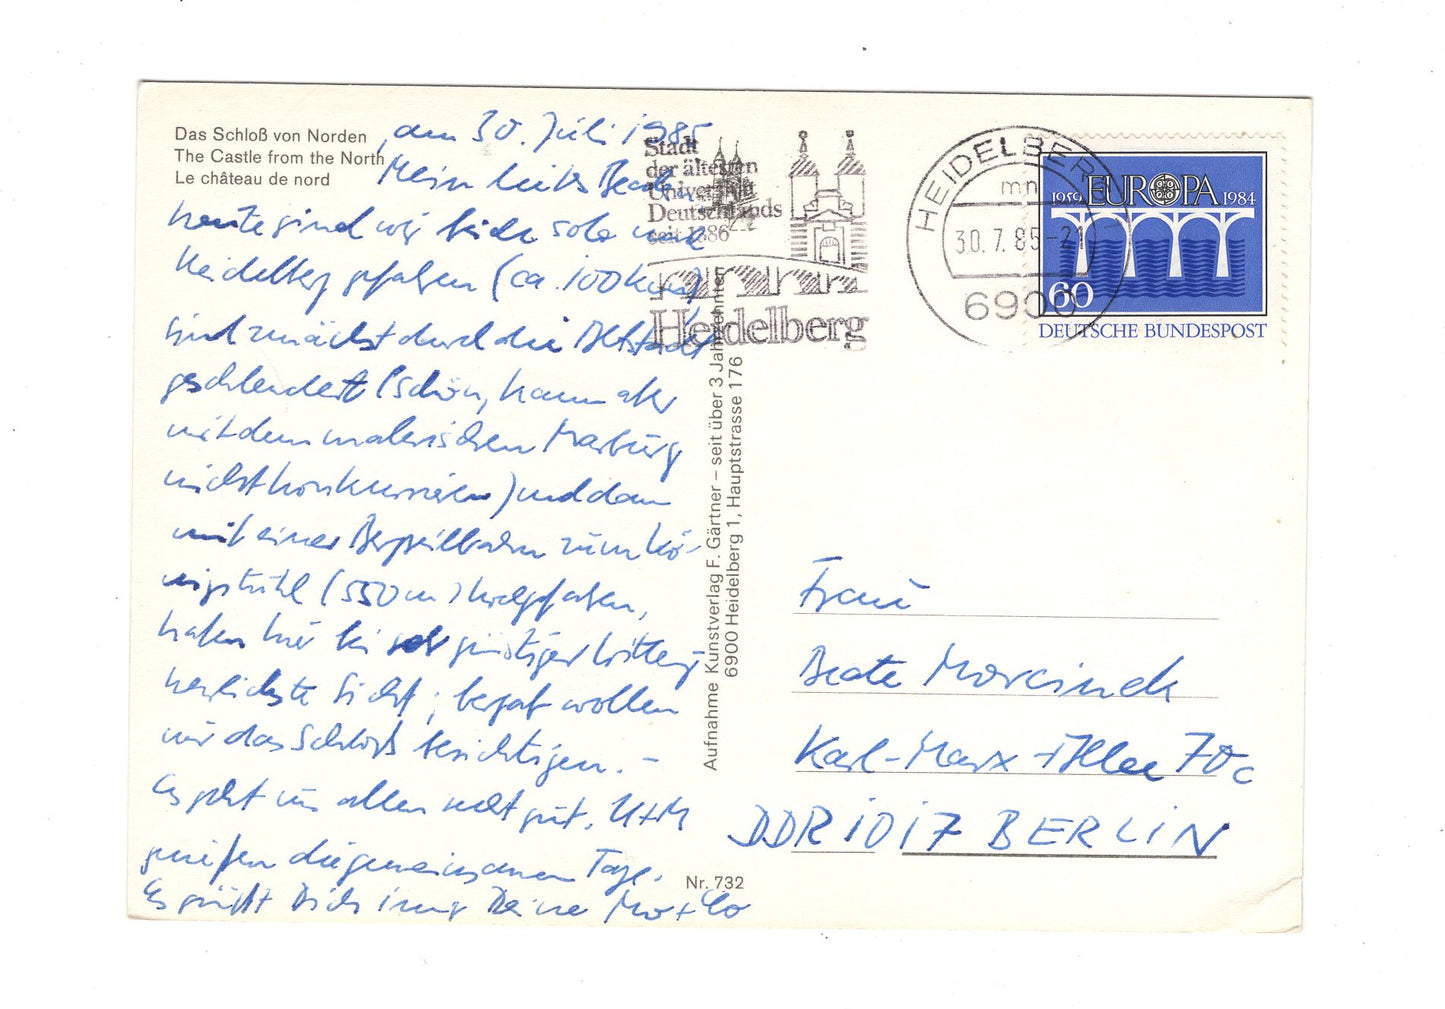 Das Schloß von Norden
The Castle from the North
Le château de nord
, den 30. Juli 1985
Mein liebes
heute sind wir beide
Heidelberg gefahren (ca. 100 km)
sind zunächst durch die Altstadt
geschlendert (schön, kann aber
mit dem malerischen Marburg
nicht konkurrieren) und dann
mit einer Bergseilbahn zum Kö-
nigstuhl (550 m) hochgefahren,
haben hier bei sehr günstiger Witterg.
herrlichste Sicht; bergab wollen
wir das Schloß besichtigen. –
Es geht uns allen recht gut. U + M
genießen die gemeinsamen Tage.
Es grüßt Dich innig Deine
Nr. 732
Aufnahme Kunstverlag F. Gärtner – seit über 3 Jahrzehnten
6900 Heidelberg 1, Hauptstrasse 176
Stadt
der ältesten
Universität
Deutschlands
seit 1386
Heidelberg
HEIDELBERG 1
mn
30.7.85-21
6900
1959 EUROPA 1984
60
DEUTSCHE BUNDESPOST
Frau
Beate Morcinek
Karl-Marx-Allee 70c
DDR 1017 BERLIN